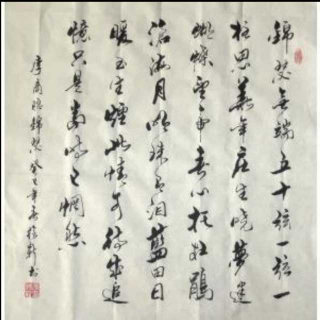 錦瑟無端五十弦一弦一
柱思華年莊生曉夢迷
蝴蝶望帝春心托杜鵑
滄海月明珠有淚藍田日
暖玉生煙此情可待成追
憶只是當時已惘然
李商隱錦瑟癸巳年春書